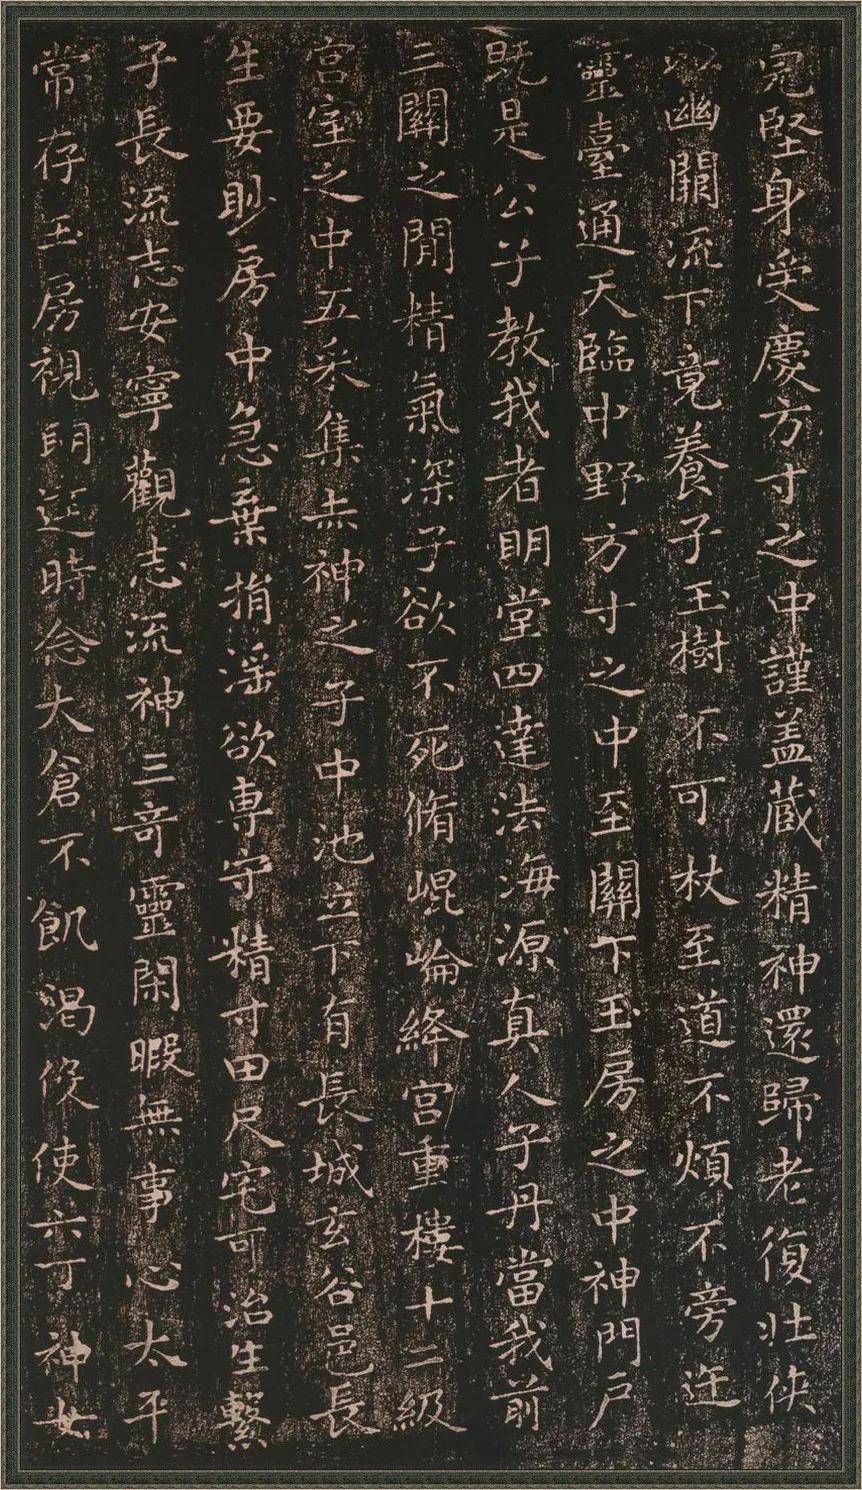 完堅身受慶方寸之中謹盖藏精神還歸老復壯俠
以幽闕流下竟養子玉樹不可杖至道不煩不旁迕
靈臺通天臨中野方寸之中至關下玉房之中神門戶
既是公子教我者明堂四達法海源真人子丹當我前
三關之閒精氣深子欲不死脩崐崘絳宮重樓十二級
宮室之中五采集赤神之子中池立下有長城玄谷邑長
生要眇房中急棄捐淫欲專守精寸田尺宅可治生繫
子長流志安寧觀志流神三奇靈閑暇無事心太平
常存玉房視明達時念大倉不飢渴役使六丁神女